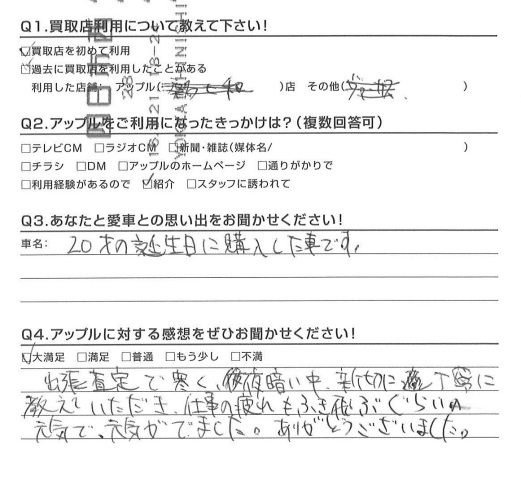 Q1.買取店利用について教えて下さい!
☑買取店を初めて利用
☑過去に買取店を利用したことがある
利用した店舗: アップル( )店 その他( )
Q2.アップルをご利用になったきっかけは?(複数回答可)
□テレビCM □ラジオCM □新聞・雑誌(媒体名/ )
□チラシ □DM □アップルのホームページ □通りがかりで
□利用経験があるので ☑紹介 □スタッフに誘われて
Q3.あなたと愛車との思い出をお聞かせください!
車名: 20才の誕生日に購入した車です。
Q4.アップルに対する感想をぜひお聞かせください!
☑大満足 □満足 □普通 □もう少し □不満
出張査定で寒く、夜暗い中、親切に丁寧に
教えていただき、仕事の疲れもふき飛ぶぐらいの
元気で、元気がでました。ありがとうございました。